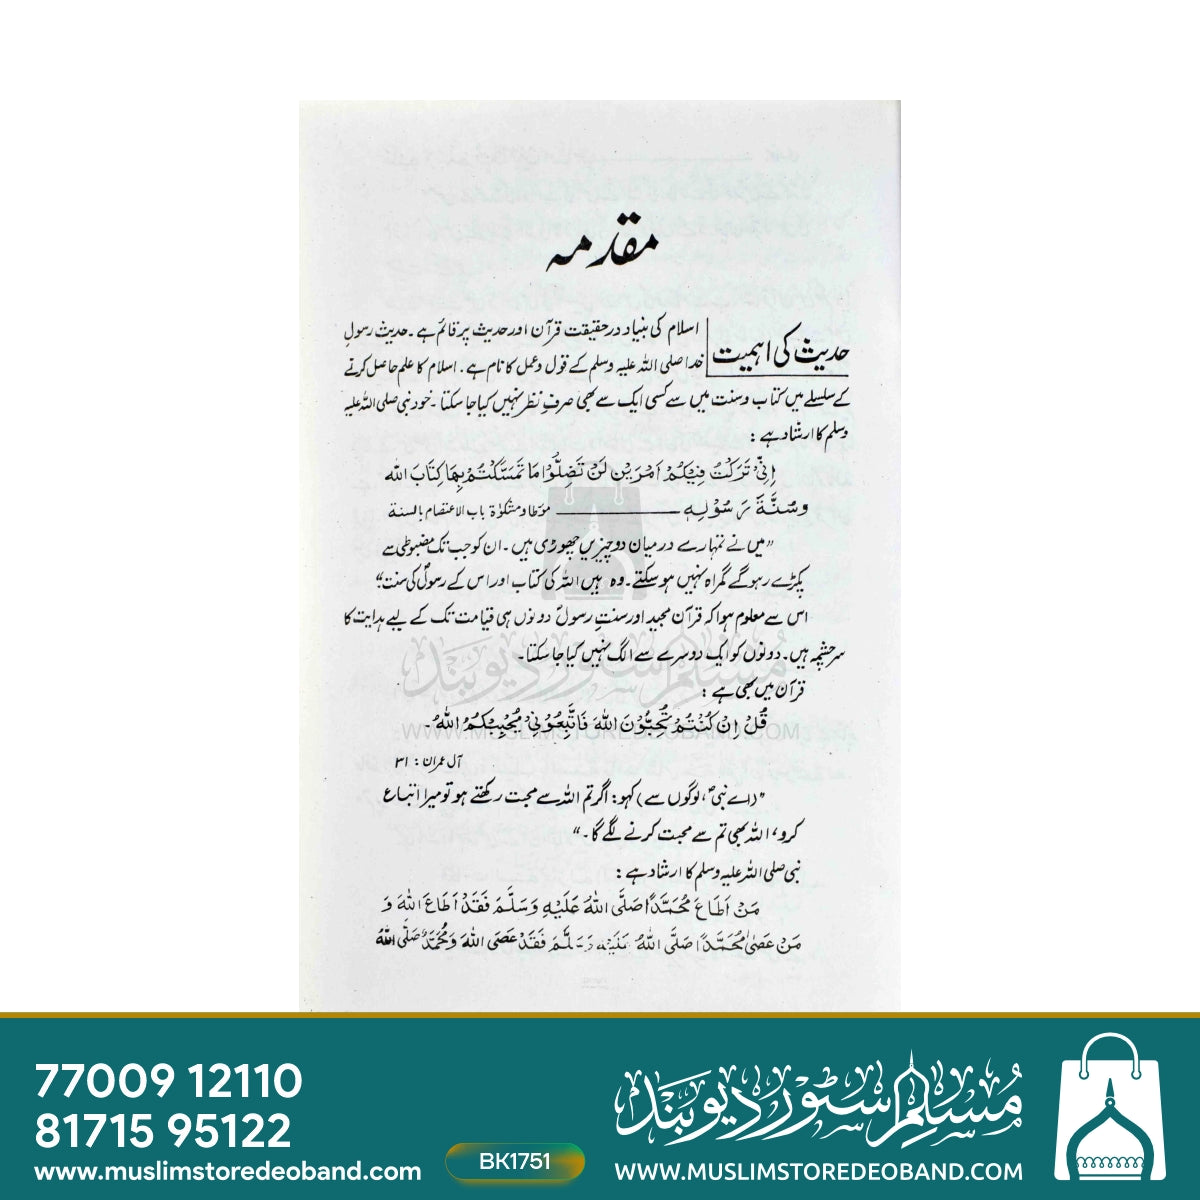 مقدمہ
حدیث کی اہمیت
اسلام کی بنیاد درحقیقت قرآن اور حدیث پر قائم ہے۔ حدیث رسولِ
خدا صلی اللہ علیہ وسلم کے قول و عمل کا نام ہے۔ اسلام کا علم حاصل کرنے
کے سلسلے میں کتاب و سنت میں سے کسی ایک سے بھی صرفِ نظر نہیں کیا جا سکتا۔ خود نبی صلی اللہ علیہ
وسلم کا ارشاد ہے :
اِنِّیْ تَرَکْتُ فِیْکُمْ اَمْرَیْنِ لَنْ تَضِلُّوْا مَا تَمَسَّکْتُمْ بِھِمَا کِتَابَ اللّٰہِ
وَ سُنَّۃَ رَسُوْلِہٖ ——— مؤطا و مشکوٰۃ باب الاعتصام بالسنۃ
”میں نے تمہارے درمیان دو چیزیں چھوڑی ہیں۔ ان کو جب تک مضبوطی سے
پکڑے رہو گے گمراہ نہیں ہو سکتے۔ وہ ہیں اللہ کی کتاب اور اس کے رسولؐ کی سنت۔“
اس سے معلوم ہوا کہ قرآن مجید اور سنتِ رسولؐ دونوں ہی قیامت تک کے لیے ہدایت کا
سرچشمہ ہیں۔ دونوں کو ایک دوسرے سے الگ نہیں کیا جا سکتا۔
قرآن میں بھی ہے :
قُلْ اِنْ کُنْتُمْ تُحِبُّوْنَ اللّٰہَ فَاتَّبِعُوْنِیْ یُحْبِبْکُمُ اللّٰہُ۔
آل عمران : ۳۱
”(اے نبیؐ، لوگوں سے) کہو: اگر تم اللہ سے محبت رکھتے ہو تو میرا اتباع
کرو، اللہ بھی تم سے محبت کرنے لگے گا۔“
نبی صلی اللہ علیہ وسلم کا ارشاد ہے :
مَنْ اَطَاعَ مُحَمَّدًا صَلَّی اللّٰہُ عَلَیْہِ وَسَلَّمَ فَقَدْ اَطَاعَ اللّٰہَ وَ
مَنْ عَصٰی مُحَمَّدًا صَلَّی اللّٰہُ عَلَیْہِ وَسَلَّمَ فَقَدْ عَصَی اللّٰہَ وَمُحَمَّدٌ صَلَّی اللّٰہُ
مسلم سٹور دیوبند
WWW.MUSLIMSTOREDEOBAND.COM
77009 12110
81715 95122
www.muslimstoredeoband.com
BK1751
مُسلم سٹور دیوبند
WWW.MUSLIMSTOREDEOBAND.COM